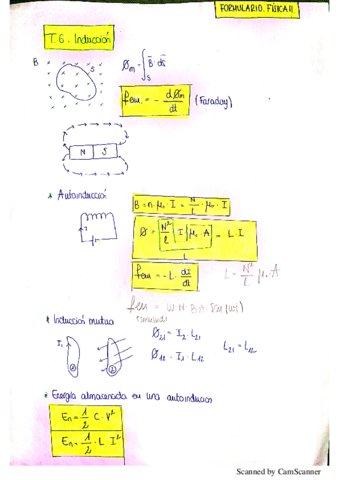 FORMULARIO. FÍSICA II
T.6. Inducción
B
S
Øm = ∫s B̄ ds̄
fem = - dØm/dt (Faraday)
N S
* Autoinducción
B = n·μ₀·I = N/L · μ₀ · I
I
Ø = N²/L · I · μ₀ · A = L·I
L
fem = -L · dI/dt
L = N²/L μ₀·A
fem = W·N·B·A
* Inducción mutua
I₁
Ø₂₁ = I₂·L₂₁
Ø₁₂ = I₁·L₁₂
L₂₁ = L₁₂
* Energía almacenada en una autoinducción
En = 1/2 C·V²
En = 1/2 · L I²
Scanned by CamScanner